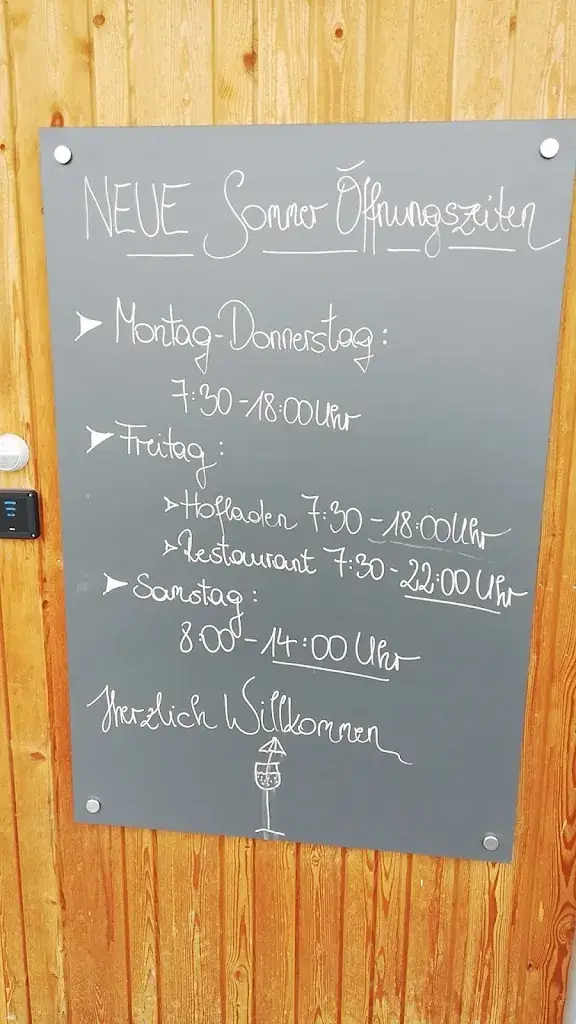 NEUE Sommer Öffnungszeiten
Montag-Donnerstag:
7:30-18:00 Uhr
Freitag:
Hofladen 7:30-18:00 Uhr
Restaurant 7:30-22:00 Uhr
Samstag:
8:00-14:00 Uhr
Herzlich Willkommen